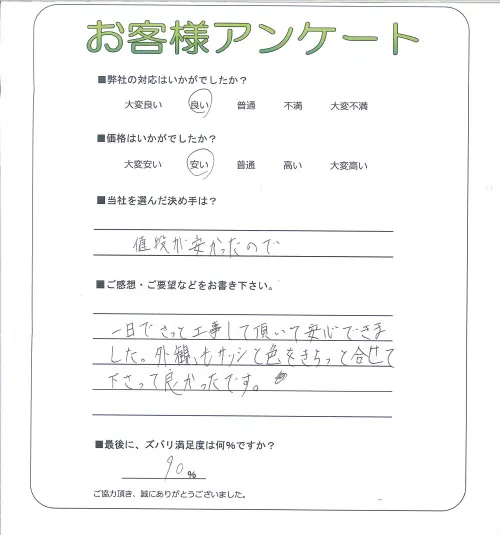 お客様アンケート
■弊社の対応はいかがでしたか?
大変良い 良い 普通 不満 大変不満
■価格はいかがでしたか?
大変安い 安い 普通 高い 大変高い
■当社を選んだ決め手は?
値段が安かったので
■ご感想・ご要望などをお書き下さい。
一日でさっと工事して頂いて安心できま
した。外観もサッシと色をきちっと合せて
下さって良かったです。
■最後に、ズバリ満足度は何%ですか?
90%
ご協力頂き、誠にありがとうございました。